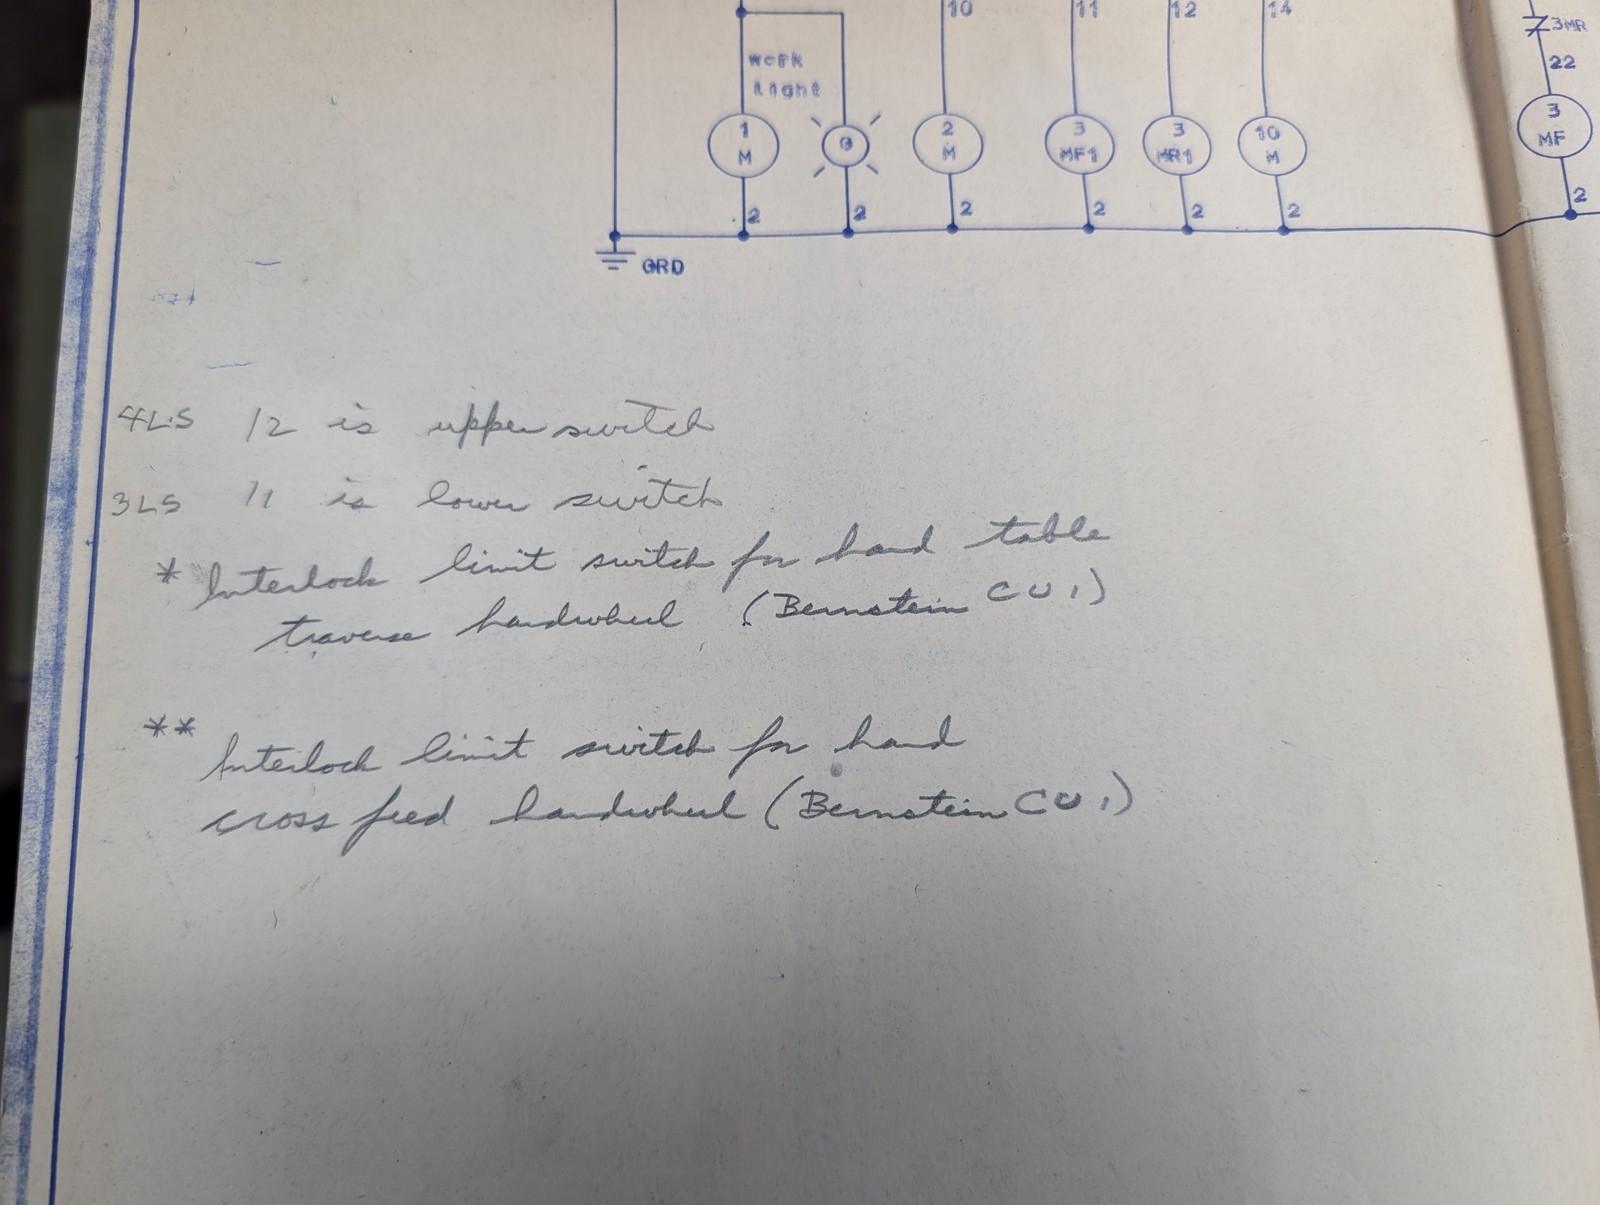 10 11 12 14
3MR
work
light
22
1
M
2
M
3
MF1
3
MR1
10
M
3
MF
2 2 2 2 2 2 2
GRD
4LS 12 is upper switch
3LS 11 is lower switch
* Interlock limit switch for hand table
traverse handwheel (Bernstein CU1)
** Interlock limit switch for hand
cross feed handwheel (Bernstein CU1)